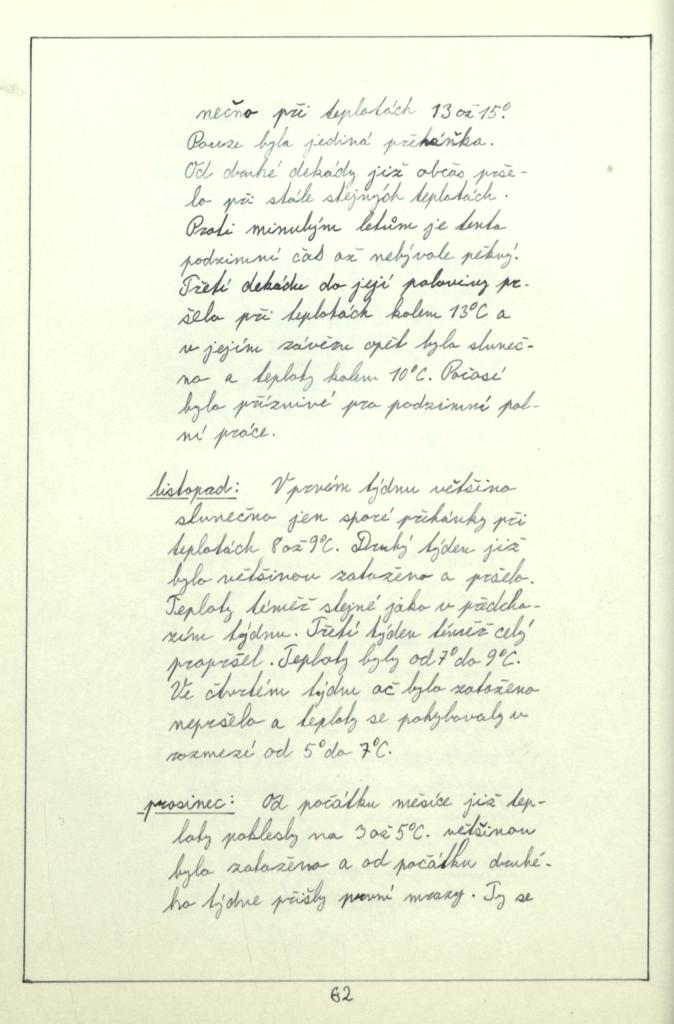 nečno při teplotách 13 až 15°.
Pouze byla jediná přeháňka.
Od druhé dekády již občas prše-
lo při stále stejných teplotách.
Proti minulým letům je tento
podzimní čas až nebývale pěkný.
Třetí dekádu do její poloviny pr-
šelo při teplotách kolem 13°C a
v jejím závěru opět bylo sluneč-
no a teploty kolem 10°C. Počasí
bylo příznivé pro podzimní pol-
ní práce.
listopad: V prvém týdnu většino
slunečno jen sporé přehánky při
teplotách 8 až 9°C. Druhý týden již
bylo většinou zataženo a pršelo.
Teploty téměř stejné jako v předcho-
zím týdnu. Třetí týden téměř celý
propršel. Teploty byly od 7° do 9°C.
Ve čtvrtém týdnu ač bylo zataženo
nepršelo a teploty se pohybovaly v
rozmezí od 5° do 7°C.
prosinec: Od počátku měsíce již tep-
loty poklesly na 3 až 5°C. většinou
bylo zataženo a od počátku druhé-
ho týdne přišly první mrazy. Ty se
62